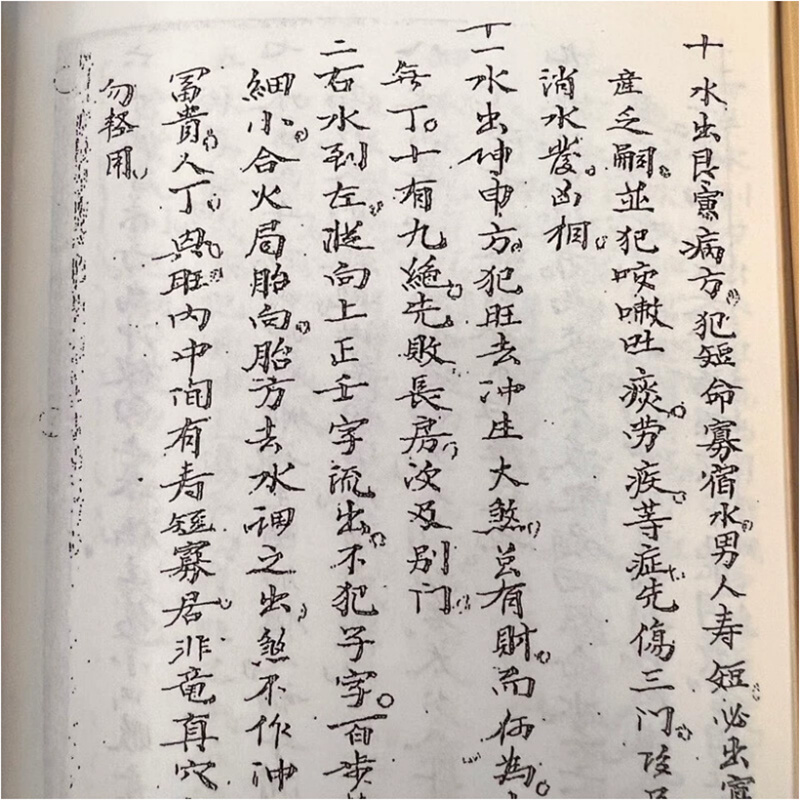 十水出艮寅病方。犯短命寡宿水。男人寿短。必出寡
産乏嗣。並犯咳嗽吐痰。劳疾等症。先傷三门。
消水發凶禍。
十一水出坤申方。犯旺去冲生大煞。总有財。而何為。
無丁。十有九絶。先敗長房。次及别门。
二右水到左。從向上正壬字流出。不犯子字。百步
細小。合火局胎向。胎方去水謂之出煞。不作冲
冨貴。人丁。興旺。内中间有寿短寡居。非竜真穴
勿輕用。